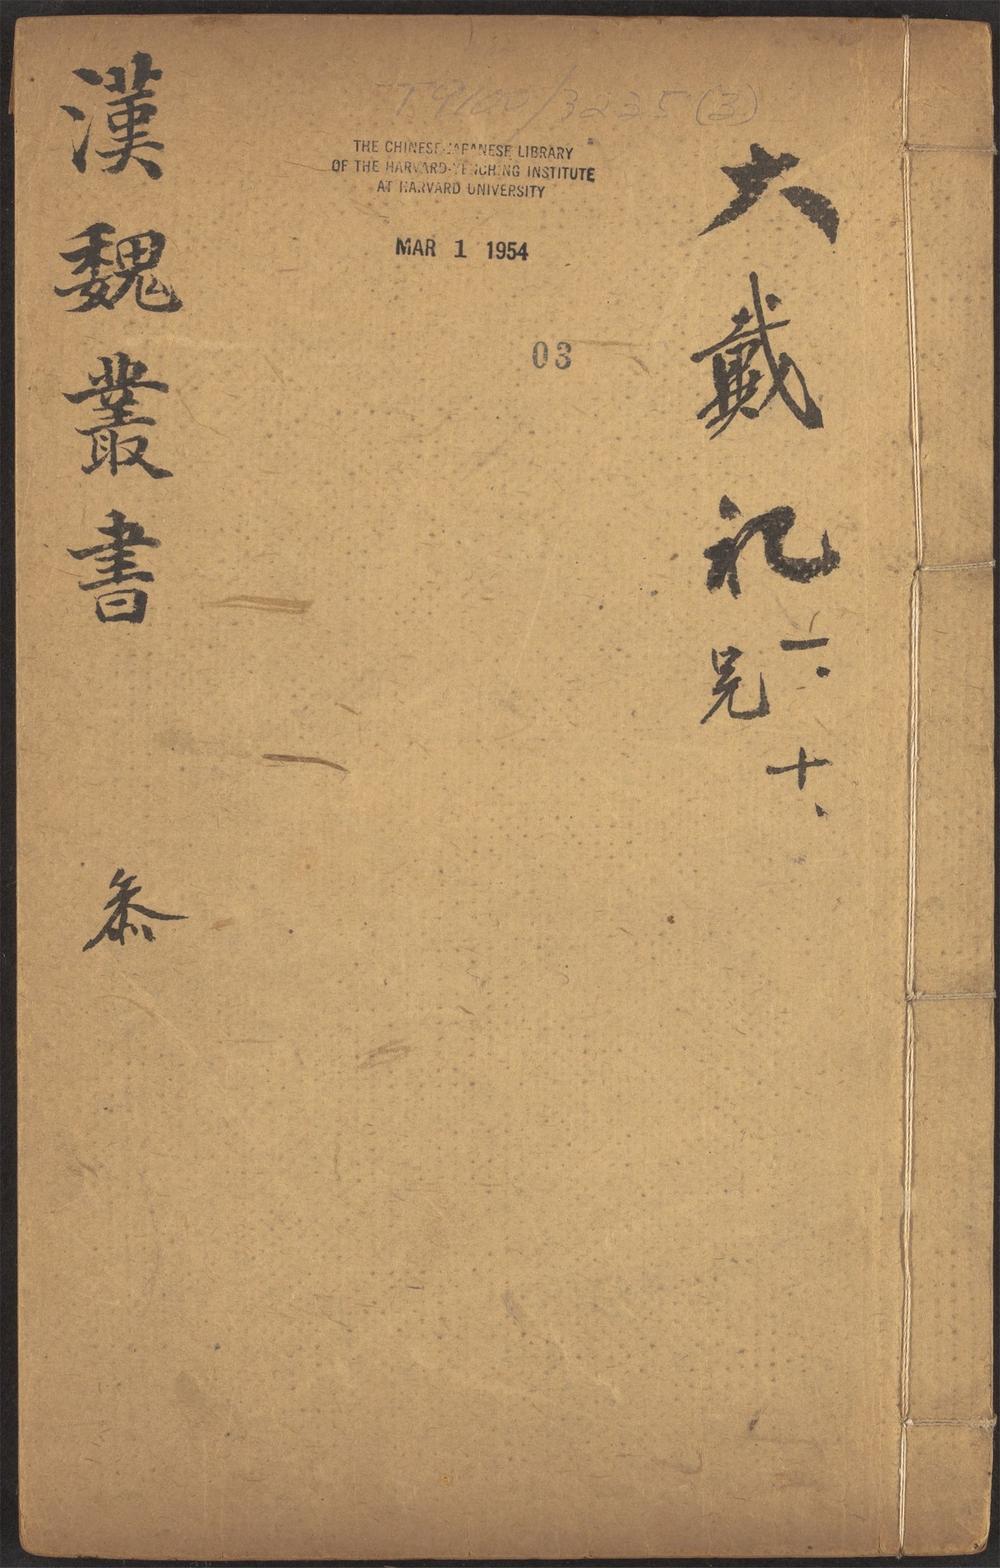 T9100/3225(3)
THE CHINESE-JAPANESE LIBRARY
OF THE HARVARD-YENCHING INSTITUTE
AT HARVARD UNIVERSITY
MAR 1 1954
03
大戴礼
一、十、
漢魏叢書 叅